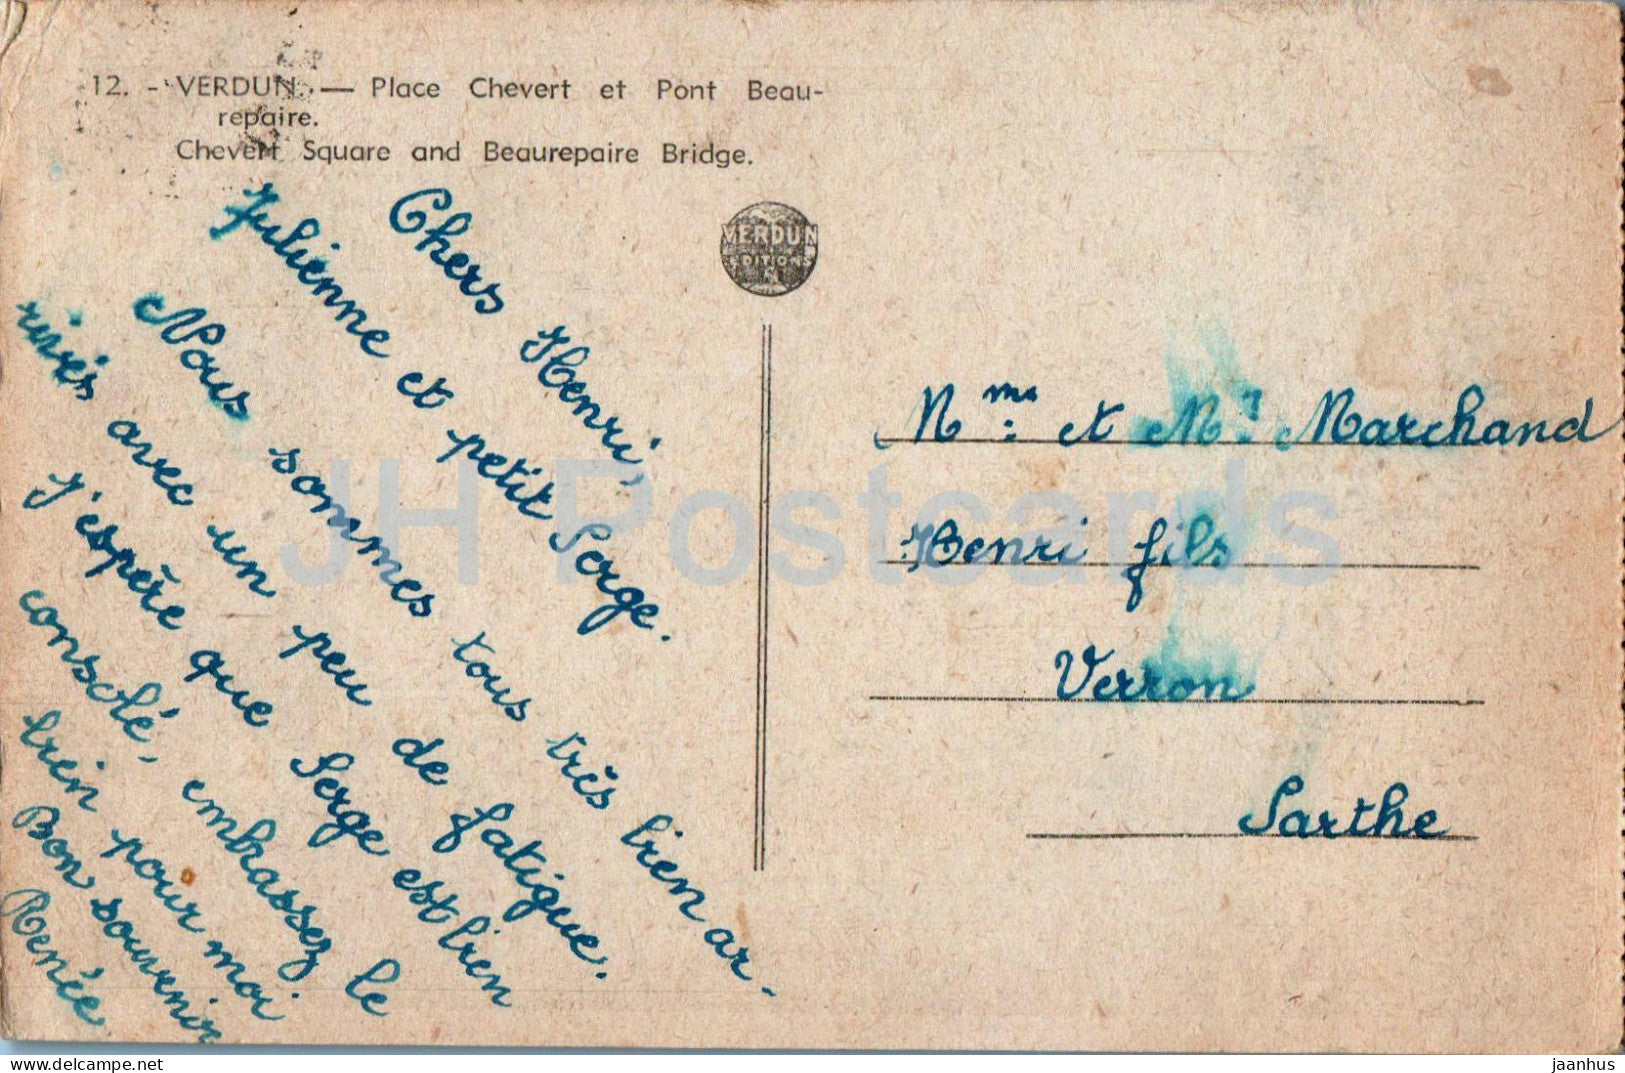 12. - VERDUN. — Place Chevert et Pont Beau-
repaire.
Chevert Square and Beaurepaire Bridge.
Chers Henri,
Julienne et petit Serge.
Nous sommes tous très bien ar-
rivés avec un peu de fatigue.
J'espère que Serge est bien
consolé, embrassez le
bien pour moi
Bon souvenir
Renée
VERDUN
EDITIONS
Mme et Mr Marchand
Henri fils
Verron
Sarthe
JH Postcards
delcampe.net
jaanhus